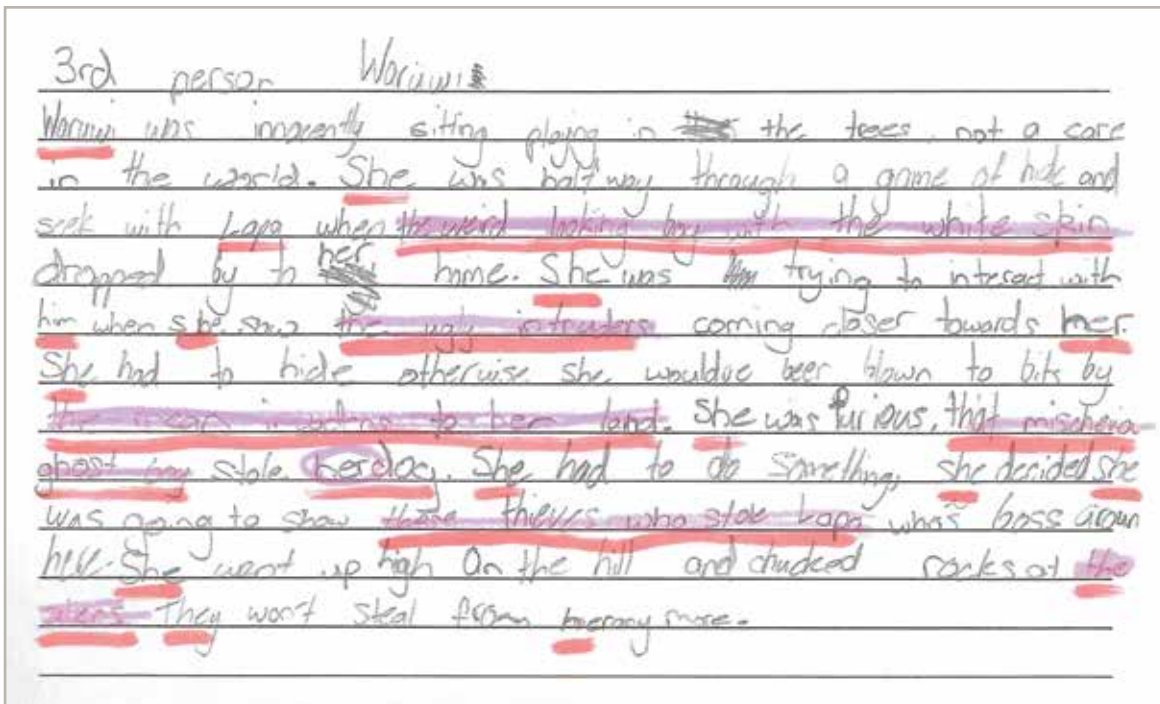 3rd person Waruwi
Waruwi was innocently sitting playing in the trees, not a care
in the world. She was half way through a game of hide and
seek with Lapa when the weird looking boy with the white skin
dropped by to her home. She was trying to interact with
him when she saw the ugly intruders coming closer towards her.
She had to hide otherwise she wouldve been blown to bits by
the mean invaders to her land. She was furious, that mischeviou
ghost boy stole her dog. She had to do something, she decided she
was going to show those thieves who stole Lapa who's boss aroun
here. She went up high on the hill and chucked rocks at the
They won't steal from her any more.